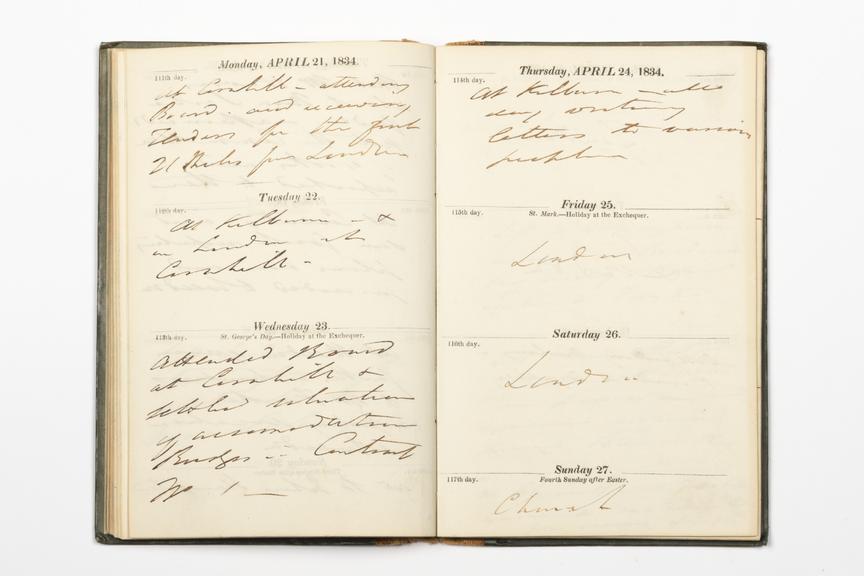 Monday, APRIL 21, 1834.
111th day.
At Cornhill – attending
Board and receiving
Tenders for the first
21 Miles from London
Tuesday 22.
112th day.
At Kilburn – &
in London at
Cornhill –
Wednesday 23.
113th day.
St. George's Day.—Holiday at the Exchequer.
Attended Board
at Cornhill &
settled situation
of accomodation
Bridges – Contract
No 1 —
Thursday, APRIL 24, 1834.
114th day.
At Kilburn – all
day writing
letters to various
Friday 25.
115th day.
St. Mark.—Holiday at the Exchequer.
London
Saturday 26.
116th day.
London
Sunday 27.
117th day.
Fourth Sunday after Easter.
Church